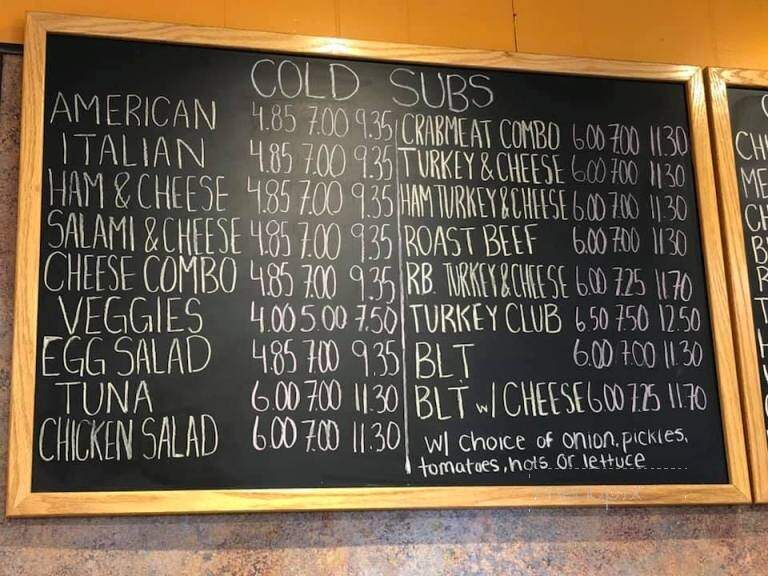 COLD SUBS
AMERICAN 4.85 7.00 9.35
ITALIAN 4.85 7.00 9.35
HAM & CHEESE 4.85 7.00 9.35
SALAMI & CHEESE 4.85 7.00 9.35
CHEESE COMBO 4.85 7.00 9.35
VEGGIES 4.00 5.00 7.50
EGG SALAD 4.85 7.00 9.35
TUNA 6.00 7.00 11.30
CHICKEN SALAD 6.00 7.00 11.30
CRABMEAT COMBO 6.00 7.00 11.30
TURKEY & CHEESE 6.00 7.00 11.30
HAM TURKEY & CHEESE 6.00 7.00 11.30
ROAST BEEF 6.00 7.00 11.30
RB. TURKEY & CHEESE 6.00 7.25 11.70
TURKEY CLUB 6.50 7.50 12.50
BLT 6.00 7.00 11.30
BLT w/ CHEESE 6.00 7.25 11.70
w/ choice of onion, pickles,
tomatoes, hots or lettuce